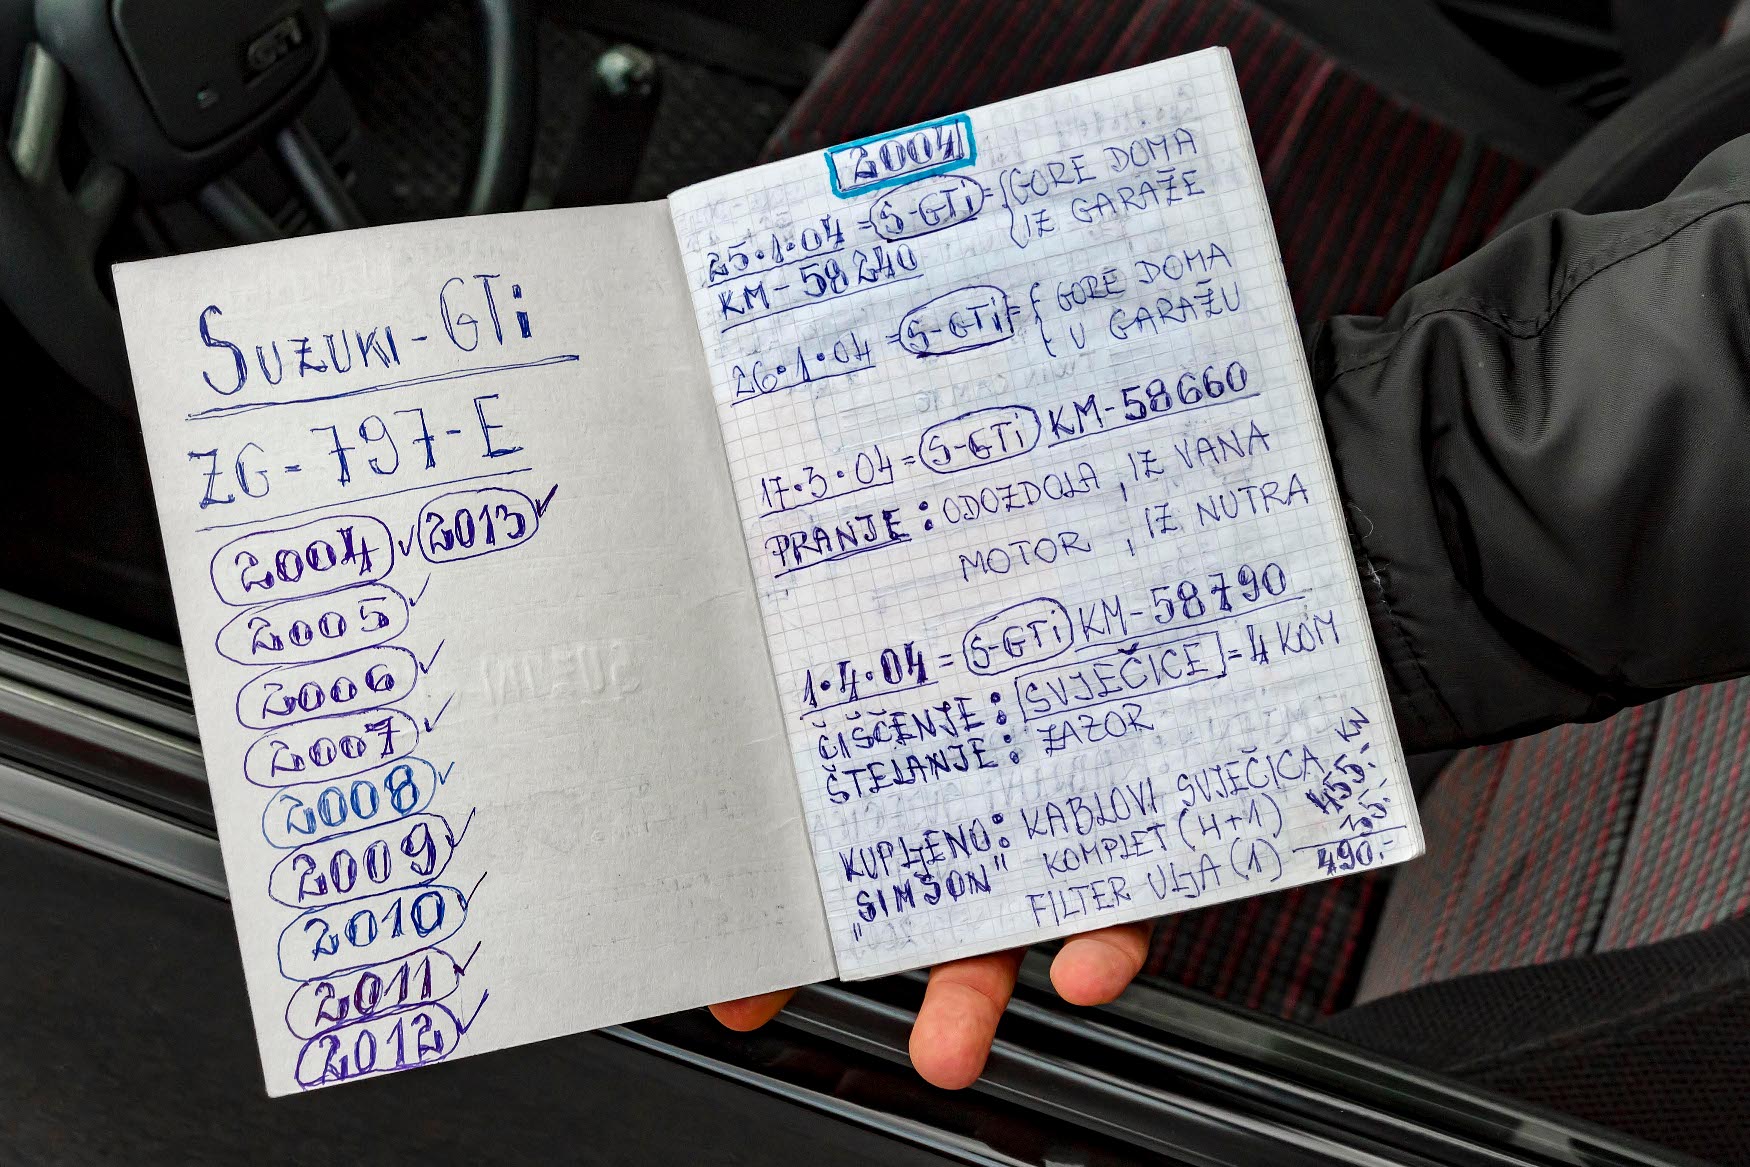 GTi
SUZUKI-GTi
ZG-797-E
2004 ✓ 2013 ✓
2005 ✓
2006 ✓
2007 ✓
2008 ✓
2009 ✓
2010 ✓
2011 ✓
2012 ✓
2004
25.1.04 = S-GTi = { GORE DOMA
IZ GARAŽE
KM-58240
26.1.04 = S-GTi = { GORE DOMA
U GARAŽU
17.3.04 = S-GTi KM-58660
PRANJE: ODOZDOLA, IZ VANA
MOTOR, IZ NUTRA
1.4.04 = S-GTi KM-58790
ČIŠČENJE: SVJEČICE = 4 KOM
ŠTELANJE: ZAZOR
KN
KUPLJENO: KABLOVI SVJEČICA 455.-
"SIMSON" KOMPLET (4+1)
FILTER ULJA (1) 490.-